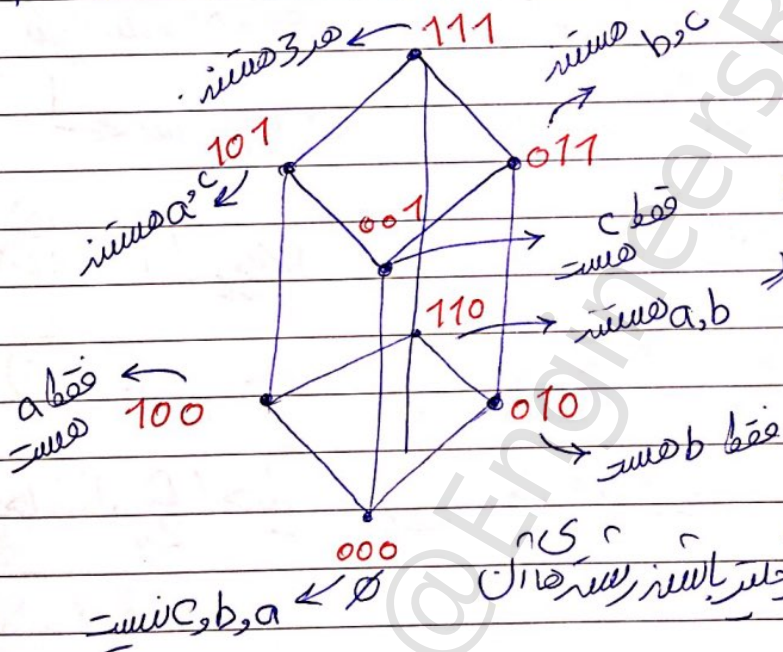 111
هر 3 هستند.
b و c هستند
101
011
a و c هستند
001
فقط c
هست
110
a, b هستند
فقط a
هست
100
010
فقط b هست
000
∅
a و b و c نیست
باشند رشته ها آن
@Engineers